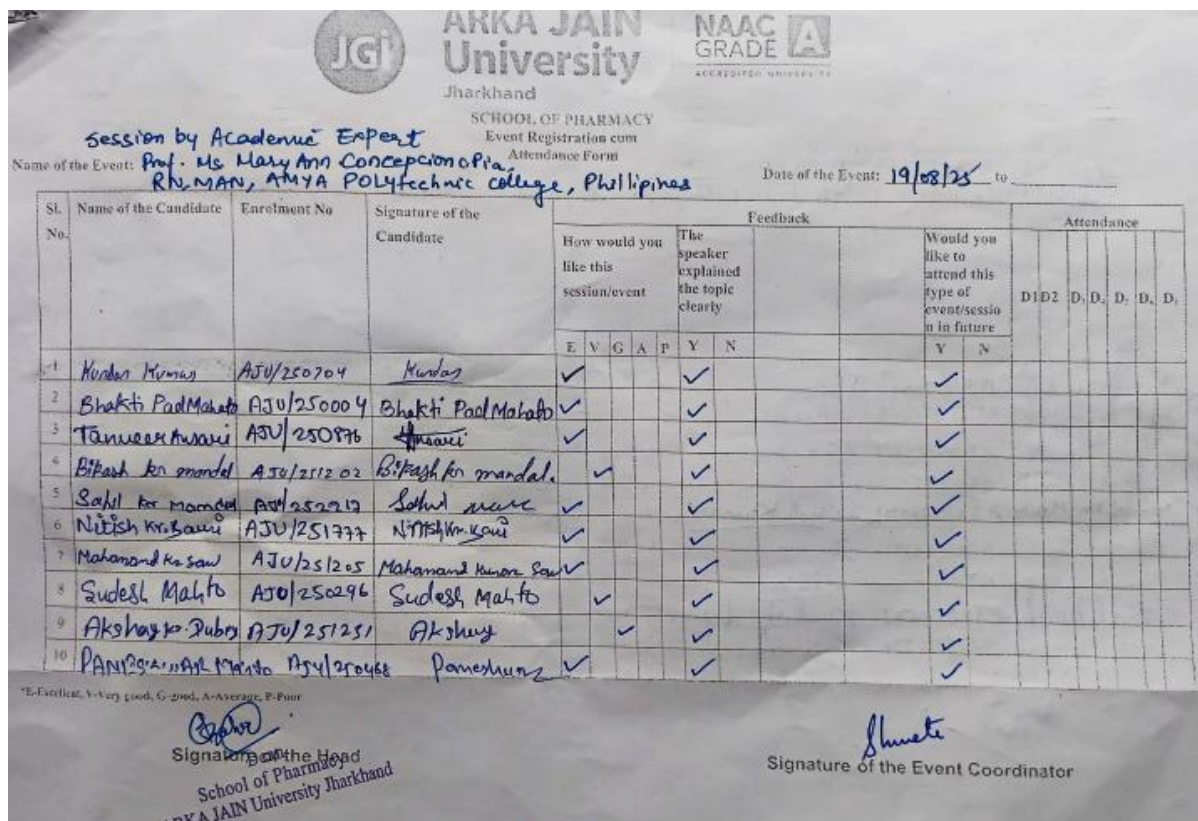 JGi
ARKA JAIN
University
Jharkhand
NAAC
GRADE A
ACCREDITED UNIVERSITY
SCHOOL OF PHARMACY
Event Registration cum
Attendance Form
Session by Academic Expert
Name of the Event: Prof. Ms Mary Ann Concepcion
RN, MAN, AMYA Polytechnic college, Phillipines
Date of the Event: 19/08/25 to
Sl. No. Name of the Candidate Enrolment No Signature of the Candidate Feedback Attendance
How would you like this session/event The speaker explained the topic clearly Would you like to attend this type of event/sessio n in future D1 D2
E V G A P Y N Y N
1 Kundan Kumar AJU/250704 Kundan ✓ ✓ ✓
2 Bhakti Pad Mahato AJU/250004 Bhakti Pad Mahato ✓ ✓ ✓
3 Tanveer Ansari AJU/250876 Ansari ✓ ✓ ✓
4 Bikash kr mandal AJU/251202 Bikash kr mandal. ✓ ✓ ✓
5 ✓ ✓ ✓
6 Nitish Kr. Bauri AJU/251777 Nitish Kr. Bauri ✓ ✓ ✓
7 Mahanand Kr Saw AJU/251205 Mahanand Kumar Saw ✓ ✓ ✓
8 Sudesh Mahto AJU/250296 Sudesh Mahto ✓ ✓ ✓
9 Akshay kr. Dubey AJU/251251 Akshay ✓ ✓ ✓
10 ✓ ✓ ✓
*E-Excellent, V-Very good, G-good, A-Average, P-Poor
Signature of the Head
Dean
School of Pharmacy
ARKA JAIN University Jharkhand
Signature of the Event Coordinator